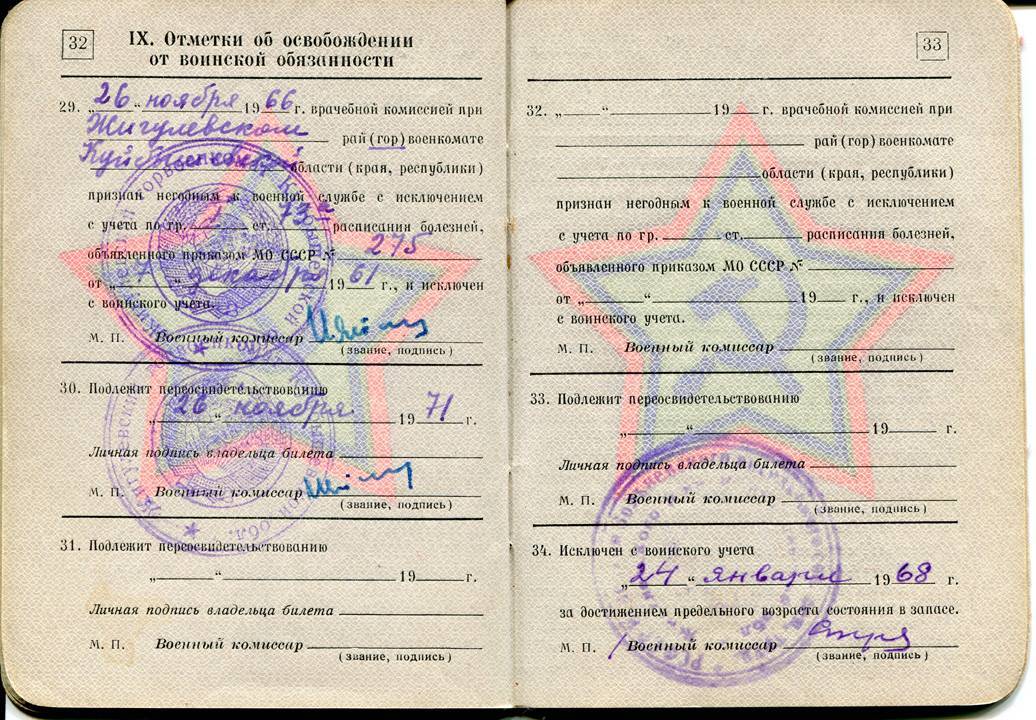 32
IX. Отметки об освобождении
от воинской обязанности
29. „26“ ноября 1966 г. врачебной комиссией при
Жигулевском рай (гор) военкомате
Куйбышевской области (края, республики)
признан негодным к военной службе с исключением
с учета по гр. I ст. 73а расписания болезней,
объявленного приказом МО СССР № 275
от „7“ декабря 1961 г., и исключен
с воинского учета.
М. П. Военный комиссар
(звание, подпись)
30. Подлежит переосвидетельствованию
„26“ ноября 1971 г.
Личная подпись владельца билета
М. П. Военный комиссар
(звание, подпись)
31. Подлежит переосвидетельствованию
„ “ 19 г.
Личная подпись владельца билета
М. П. Военный комиссар
(звание, подпись)
33
32. „ “ 19 г. врачебной комиссией при
рай (гор) военкомате
области (края, республики)
признан негодным к военной службе с исключением
с учета по гр. ст. расписания болезней,
объявленного приказом МО СССР №
от „ “ 19 г., и исключен
с воинского учета.
М. П. Военный комиссар
(звание, подпись)
33. Подлежит переосвидетельствованию
„ “ 19 г.
Личная подпись владельца билета
М. П. Военный комиссар
(звание, подпись)
34. Исключен с воинского учета
„24“ января 1968 г.
за достижением предельного возраста состояния в запасе.
М. П. Военный комиссар
(звание, подпись)